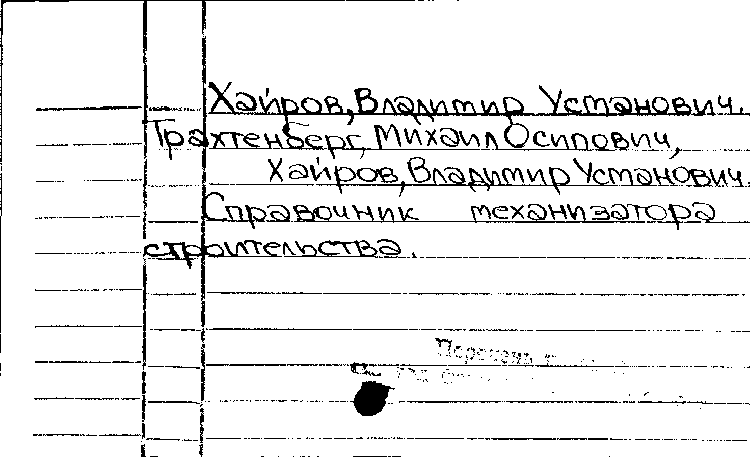 Хаиров, Владимир Усманович.
Трахтенберг, Михаил Осипович,
Хаиров, Владимир Усманович.
Справочник механизатора
строительства.